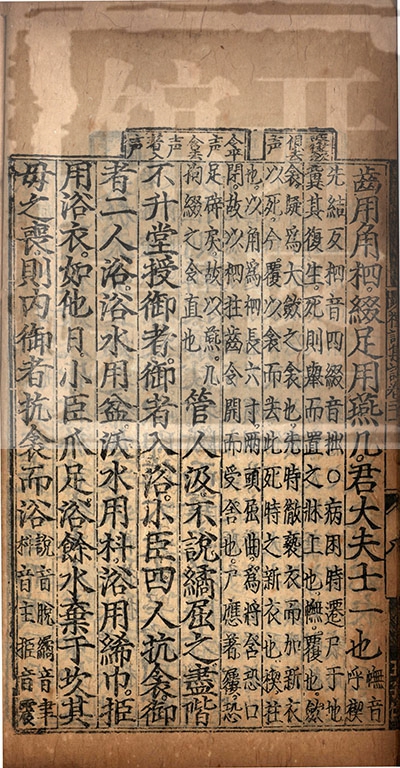 齒用角柶。綴足用燕几。君大夫士一也 幠音呼楔
先結反柶音四綴音拙○病困時遷尸于地
冀其復生死則舉而置之牀上也幠覆也斂
衾擬爲大斂之衾也先時徹褻衣而加新衣
以死今覆以衾而去此死時之新衣也楔拄
也以角爲柶長六寸兩頭屈曲爲將含恐口
閉故以柶拄齒令開而受含也尸應著屨恐
足辟戾故以燕几
拘綴之令直也
管人汲。不說繘屈之。盡階
不升堂授御者。御者入浴。小臣四人抗衾。御
者二人浴。浴水用盆。沃水用枓。浴用絺巾。挋
用浴衣如他日。小臣爪足。浴餘水棄于坎。其
母之喪。則內御者抗衾而浴 說音脫繘音聿枓音主挋音震
令平声
含去声
著入声